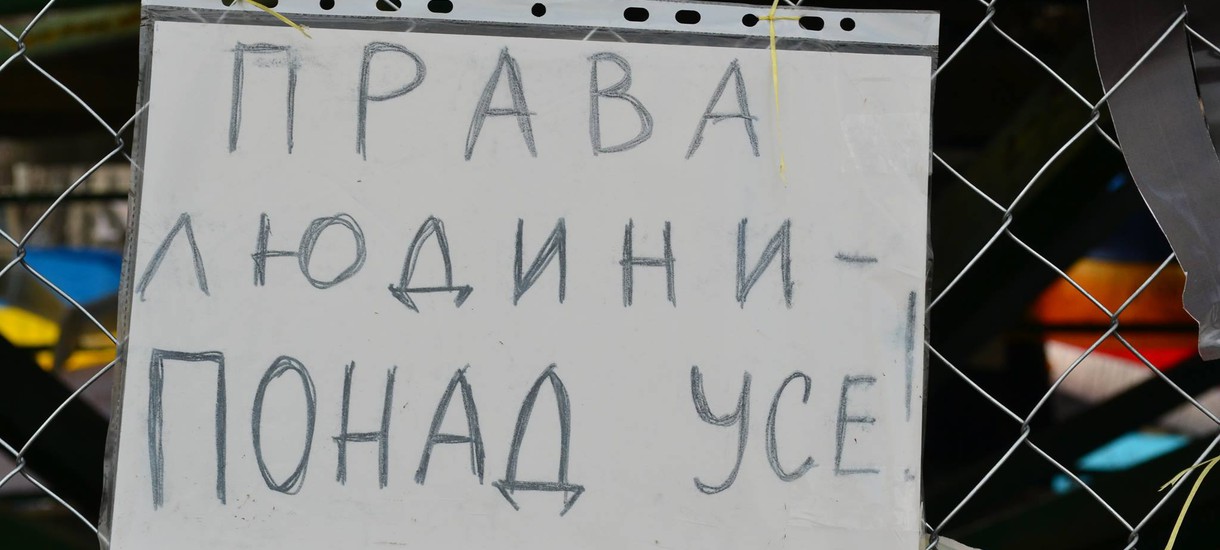 ПРАВА
ЛЮДИНИ-
ПОНАД УСЕ!